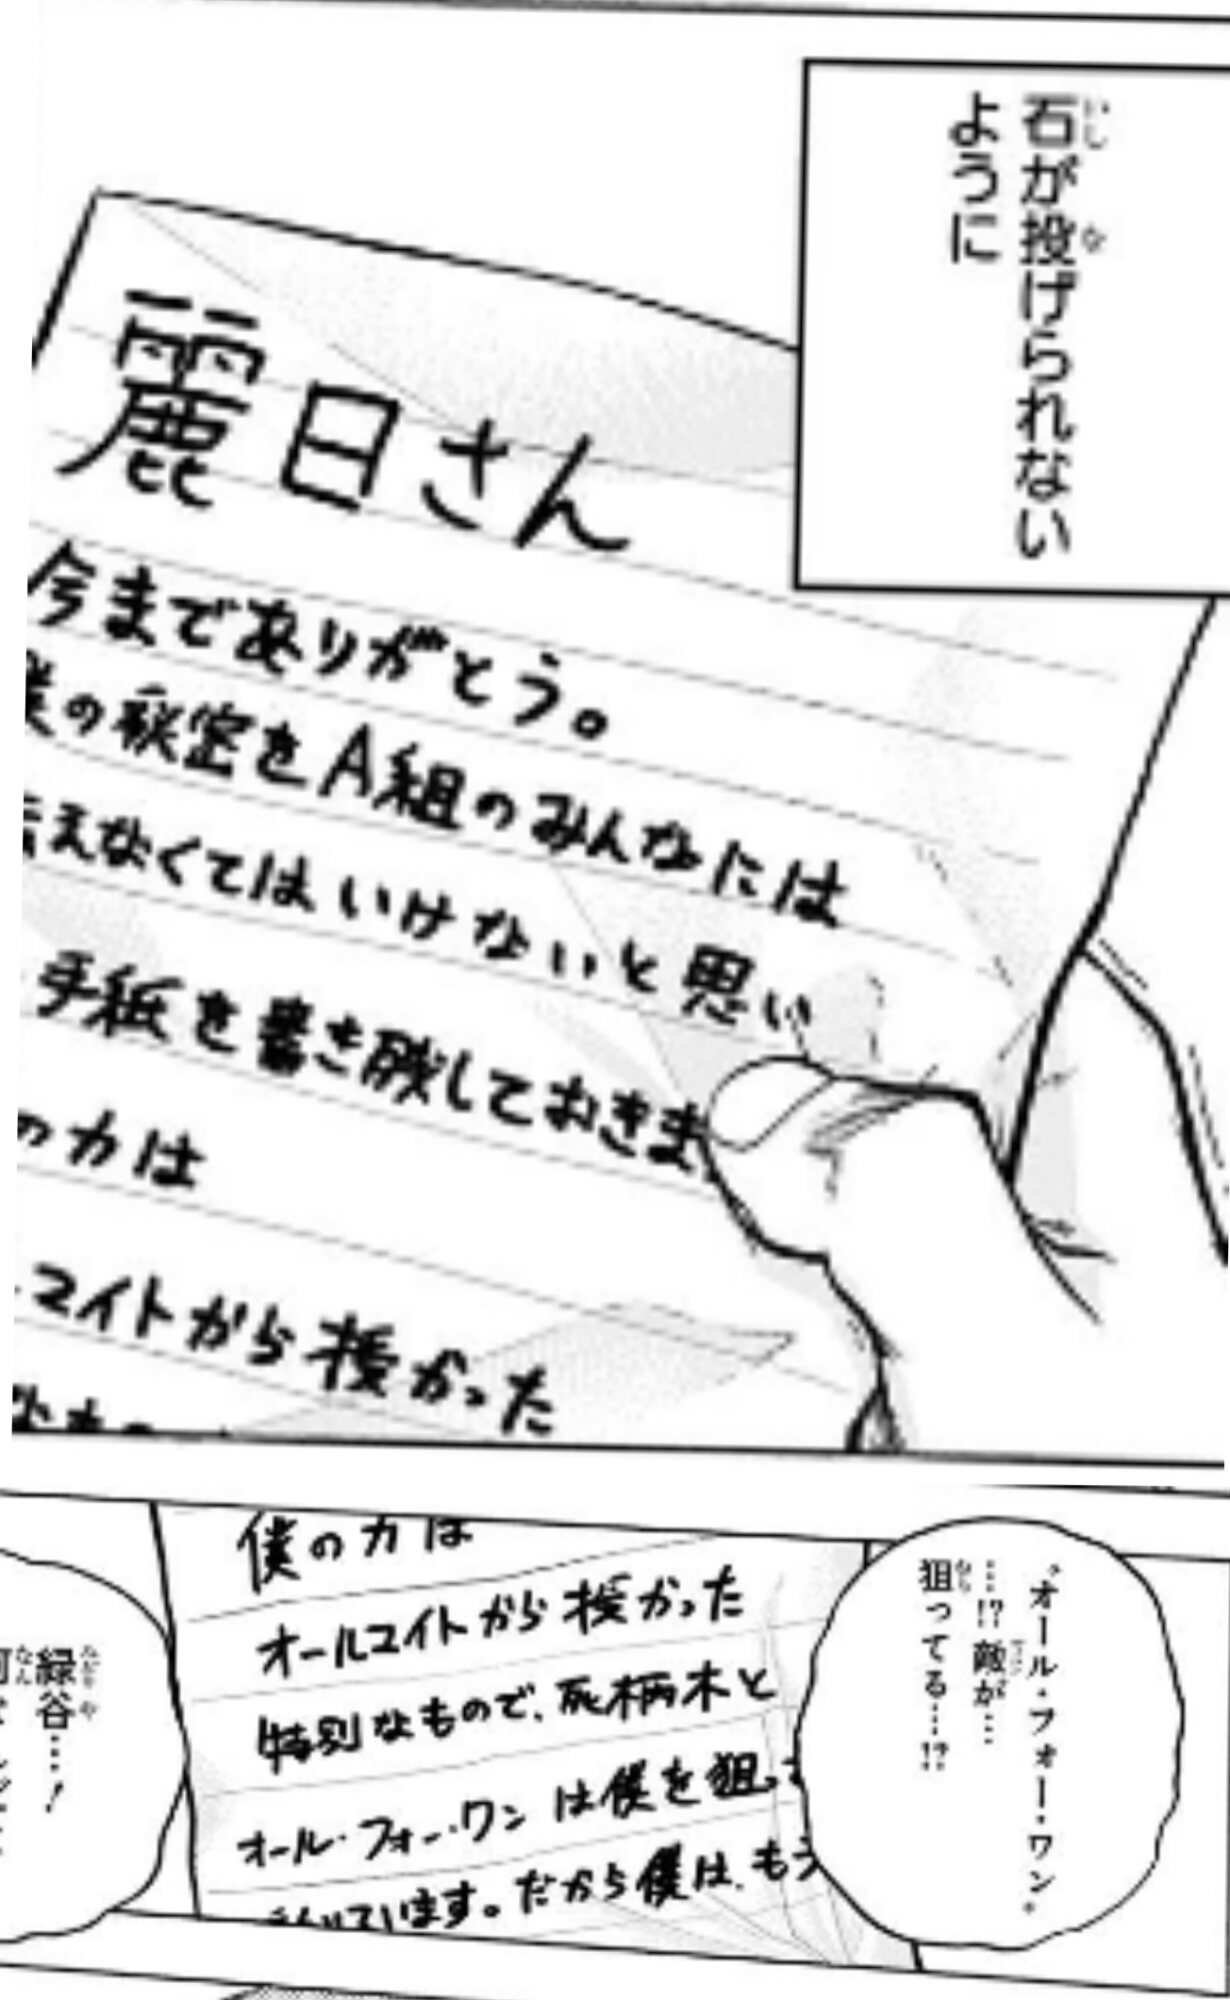 石が投げられない
ように
麗日さん
今までありがとう。
僕の秘密をA組のみんなには
伝えなくてはいけないと思い
手紙を書き残しておきま
の力は
ールマイトから授かった
僕の力は
オールマイトから授かった
特別なもので、死柄木と
オール・フォー・ワンは僕を狙って
います。だから僕は、もう
“オール・フォー・ワン”
…!?敵が…
狙ってる…!?
緑谷…!